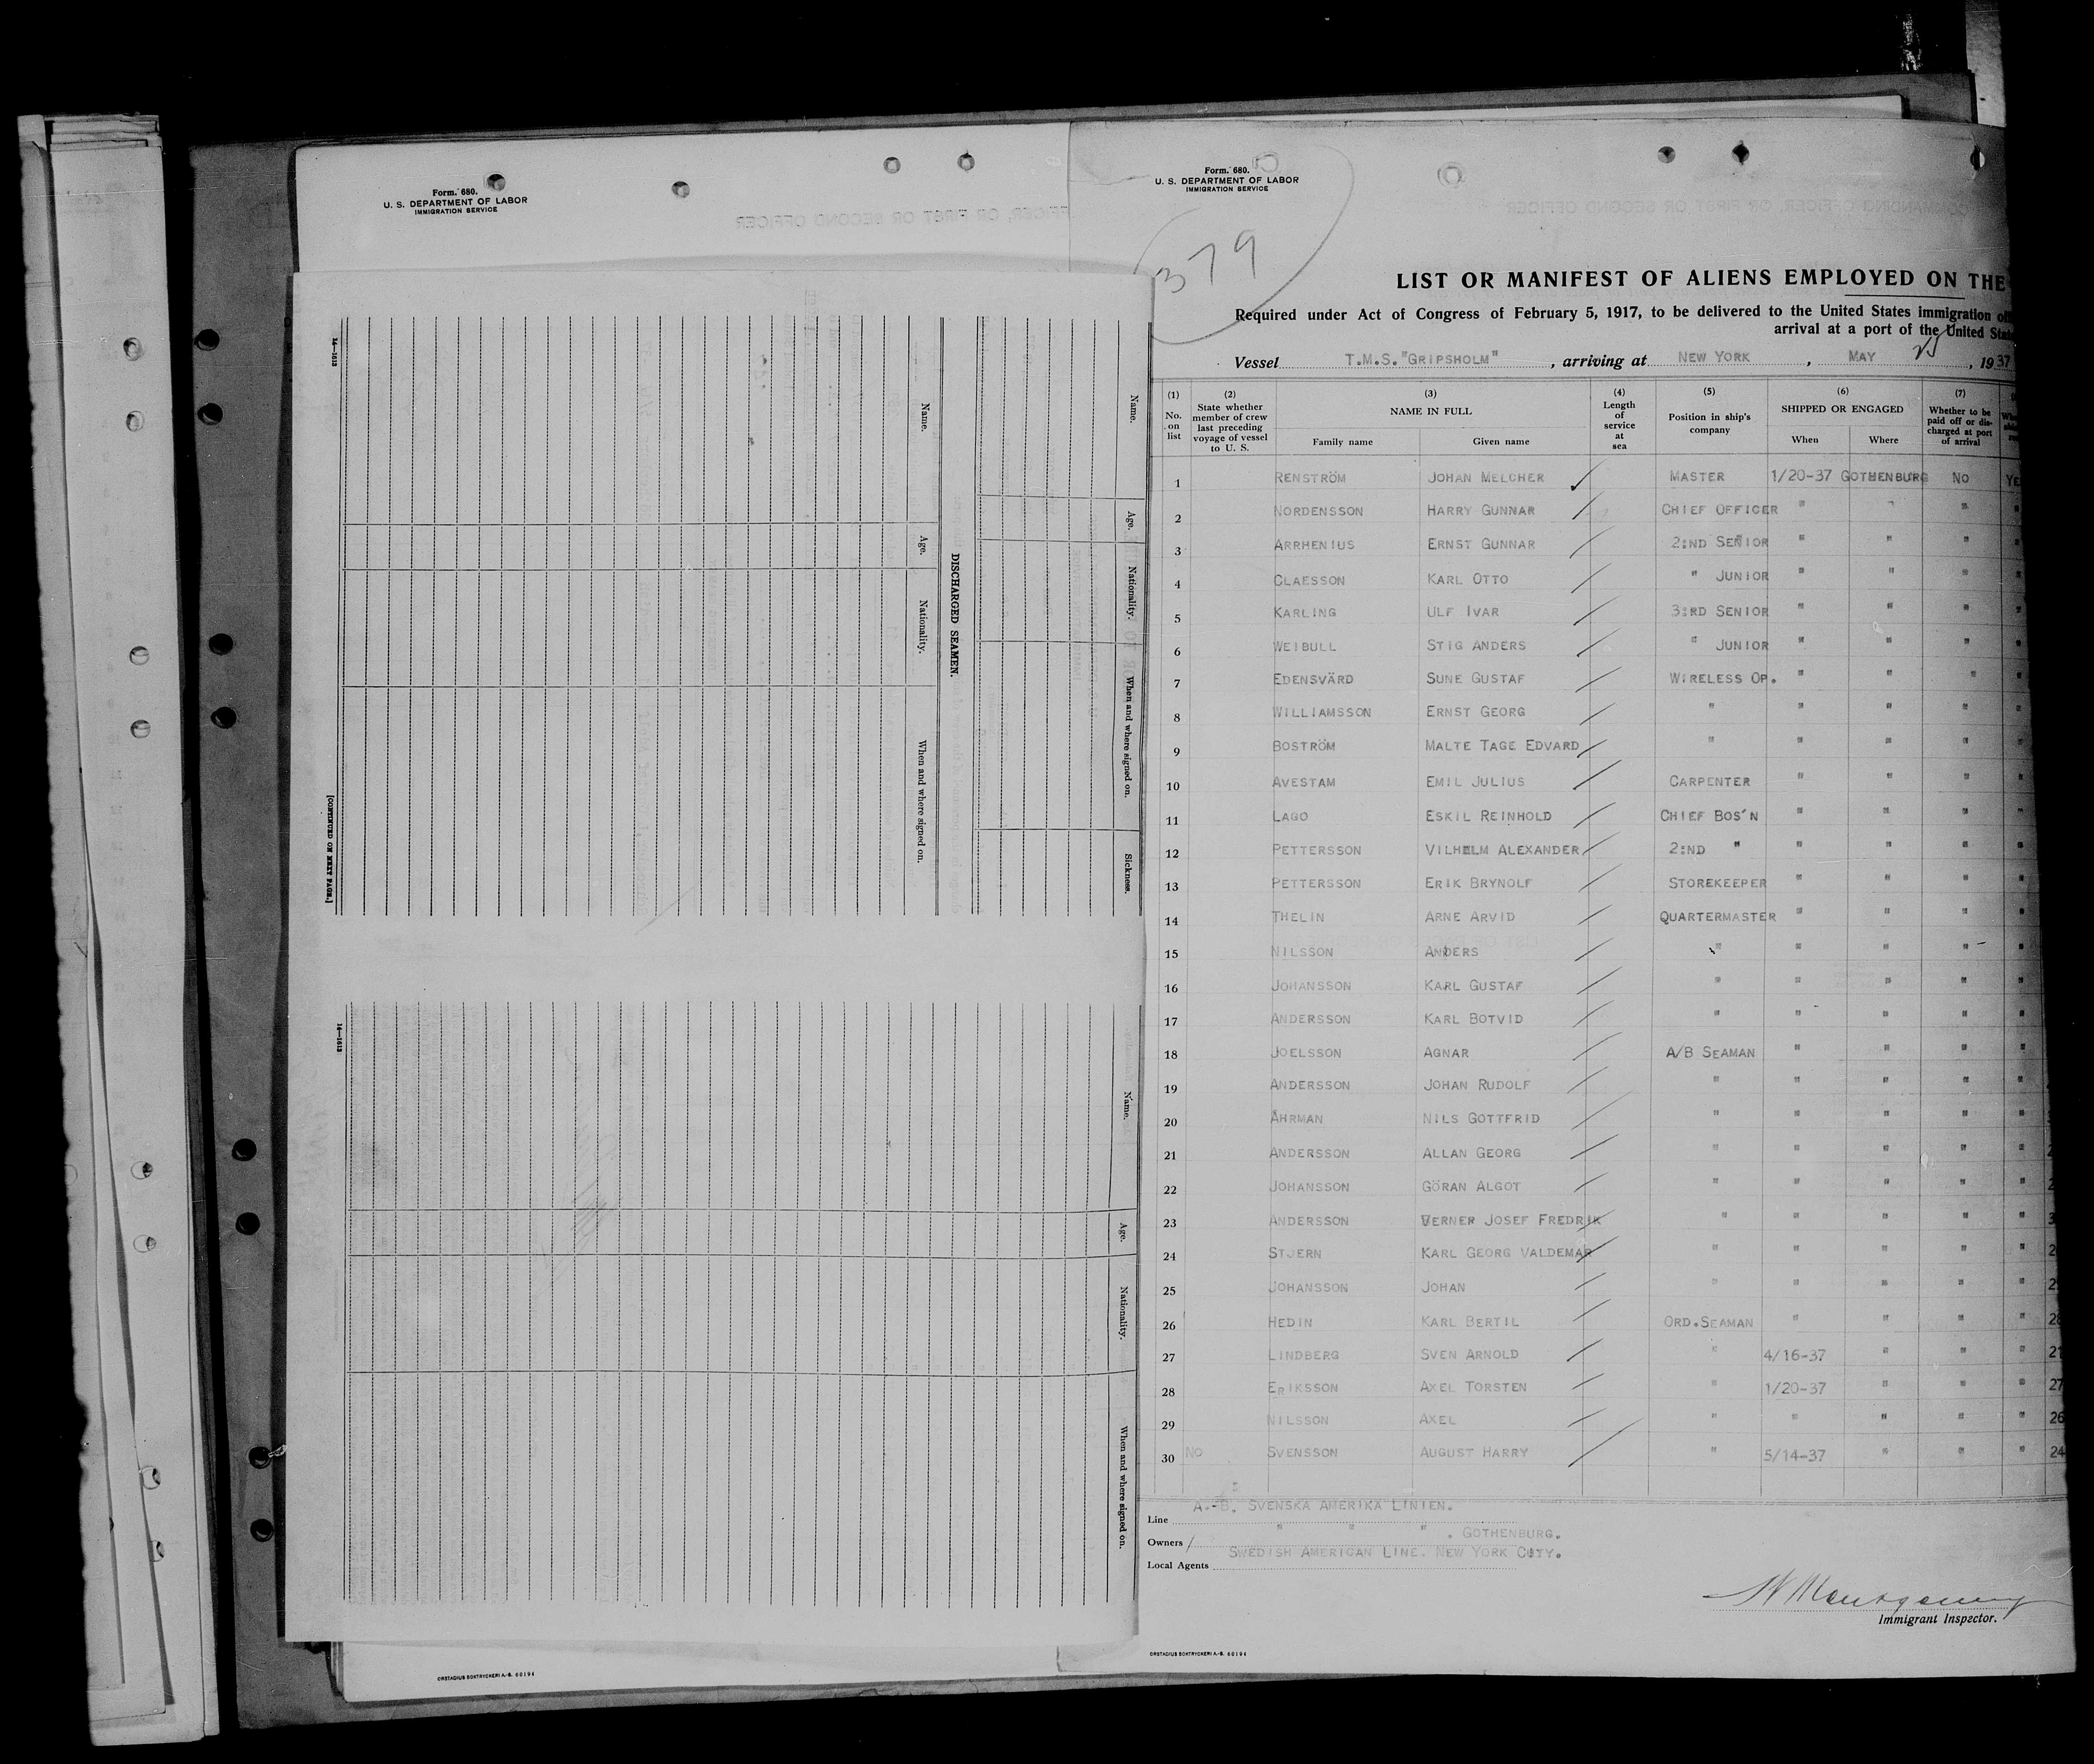 Form. 680.
U. S. DEPARTMENT OF LABOR
IMMIGRATION SERVICE
Name.
Age.
Nationality.
When and where signed on.
Sickness.
DISCHARGED SEAMEN.
Name.
Age.
Nationality.
When and where signed on.
[CONTINUED ON NEXT PAGE.]
14—1613
Name.
Age.
Nationality.
When and where signed on.
14—1613
ORSTADIUS BOKTRYCKERI A.-B. 60194
Form. 680.
U. S. DEPARTMENT OF LABOR
IMMIGRATION SERVICE
379
LIST OR MANIFEST OF ALIENS EMPLOYED ON THE
Required under Act of Congress of February 5, 1917, to be delivered to the United States immigration
arrival at a port of the United
Vessel T.M.S. "GRIPSHOLM", arriving at NEW YORK, MAY 25, 1937
(1) (2) (3) (4) (5) (6) (7)
No. on list State whether member of crew last preceding voyage of vessel to U. S. NAME IN FULL Family name Given name Length of service at sea Position in ship's company SHIPPED OR ENGAGED When Where Whether to be paid off or discharged at port of arrival
1 RENSTRÖM JOHAN MELCHER MASTER 1/20-37 GOTHENBURG NO YE
2 NORDENSSON HARRY GUNNAR CHIEF OFFICER " " " "
3 ARRHENIUS ERNST GUNNAR 2:ND SENIOR " " " "
4 CLAESSON KARL OTTO " JUNIOR " " " "
5 KARLING ULF IVAR 3:RD SENIOR " " " "
6 WEIBULL STIG ANDERS " JUNIOR " " " "
7 EDENSVÄRD SUNE GUSTAF WIRELESS OP. " " " "
8 WILLIAMSSON ERNST GEORG " " " " "
9 BOSTRÖM MALTE TAGE EDVARD " " " " "
10 AVESTAM EMIL JULIUS CARPENTER " " " "
11 LAGO ESKIL REINHOLD CHIEF BOS'N " " " "
12 PETTERSSON VILHELM ALEXANDER 2:ND " " " " "
13 PETTERSSON ERIK BRYNOLF STOREKEEPER " " " "
14 THELIN ARNE ARVID QUARTERMASTER " " " "
15 NILSSON ANDERS " " " " "
16 JOHANSSON KARL GUSTAF " " " " "
17 ANDERSSON KARL BOTVID " " " " "
18 JOELSSON AGNAR A/B SEAMAN " " " "
19 ANDERSSON JOHAN RUDOLF " " " " "
20 ÅHRMAN NILS GOTTFRID " " " " "
21 ANDERSSON ALLAN GEORG " " " " "
22 JOHANSSON GÖRAN ALGOT " " " " "
23 ANDERSSON VERNER JOSEF FREDRIK " " " " "
24 STJERN KARL GEORG VALDEMAR " " " " "
25 JOHANSSON JOHAN " " " " "
26 HEDIN KARL BERTIL ORD.SEAMAN " " " " 28
27 LINDBERG SVEN ARNOLD " 4/16-37 " " " 21
28 ERIKSSON AXEL TORSTEN " 1/20-37 " " " 27
29 NILSSON AXEL " " " " " 26
30 NO SVENSSON AUGUST HARRY " 5/14-37 " " " 24
Line A.-B. SVENSKA AMERIKA LINIEN.
Owners " " " . GOTHENBURG.
Local Agents SWEDISH AMERICAN LINE. NEW YORK CITY.
Montgomery
Immigrant Inspector.
ORSTADIUS BOKTRYCKERI A.-B. 60194